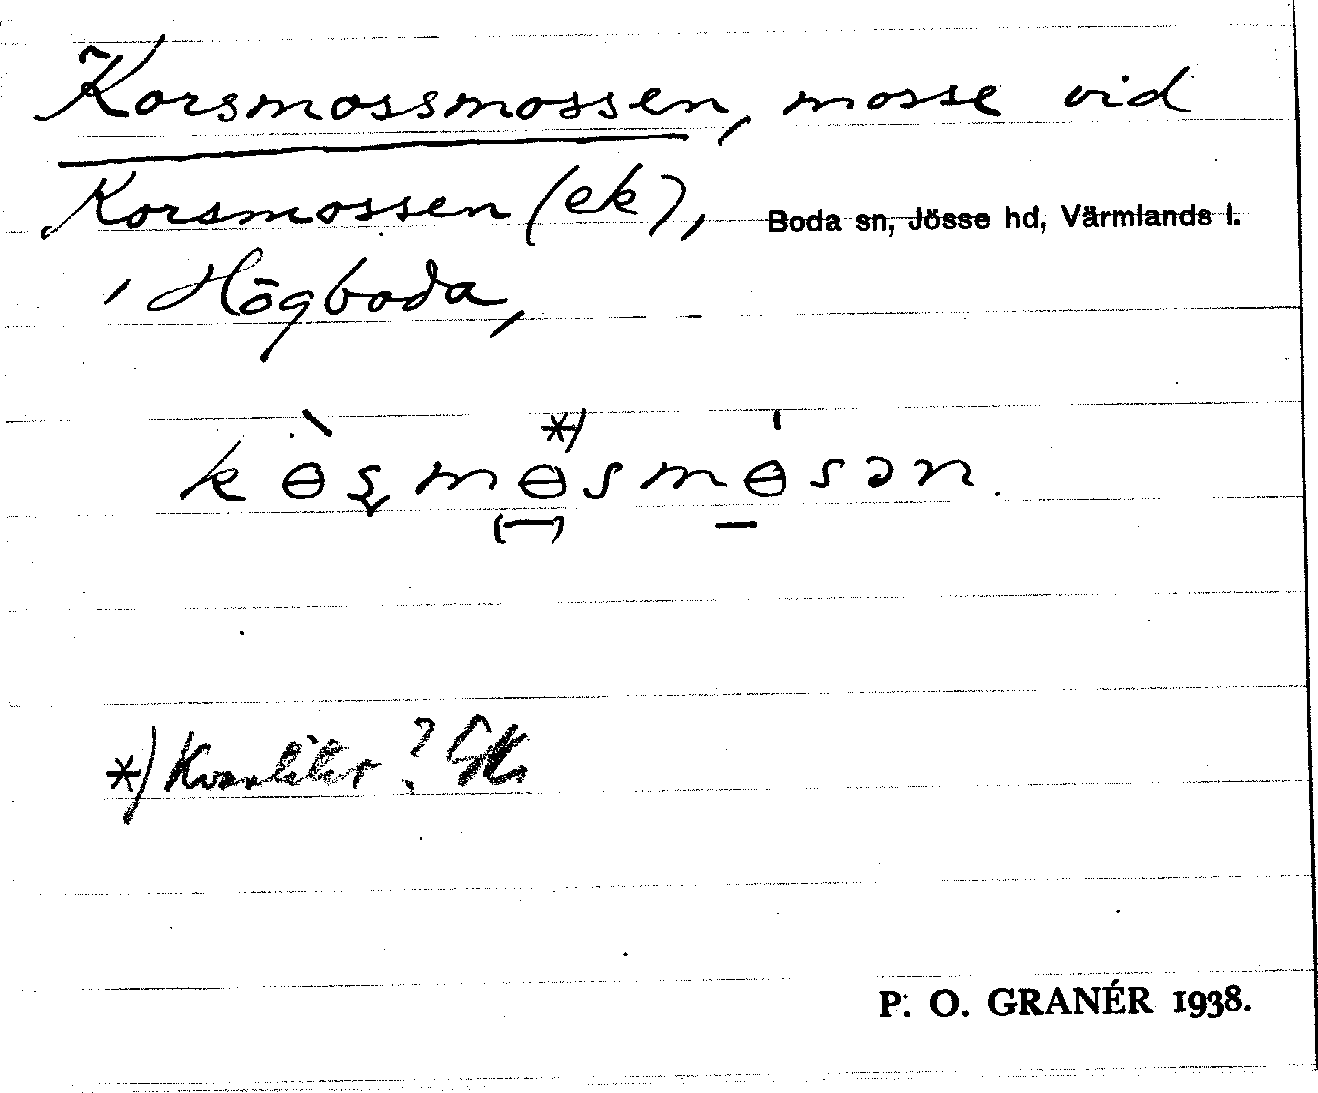 Korsmossmossen, mosse vid
Korsmossen (ek), Boda sn, Jösse hd, Värmlands l.
i Högboda,
kɵ̀ʂmɵs*)mɵ́sən.
*) Kvantitet?
P. O. GRANÉR 1938.